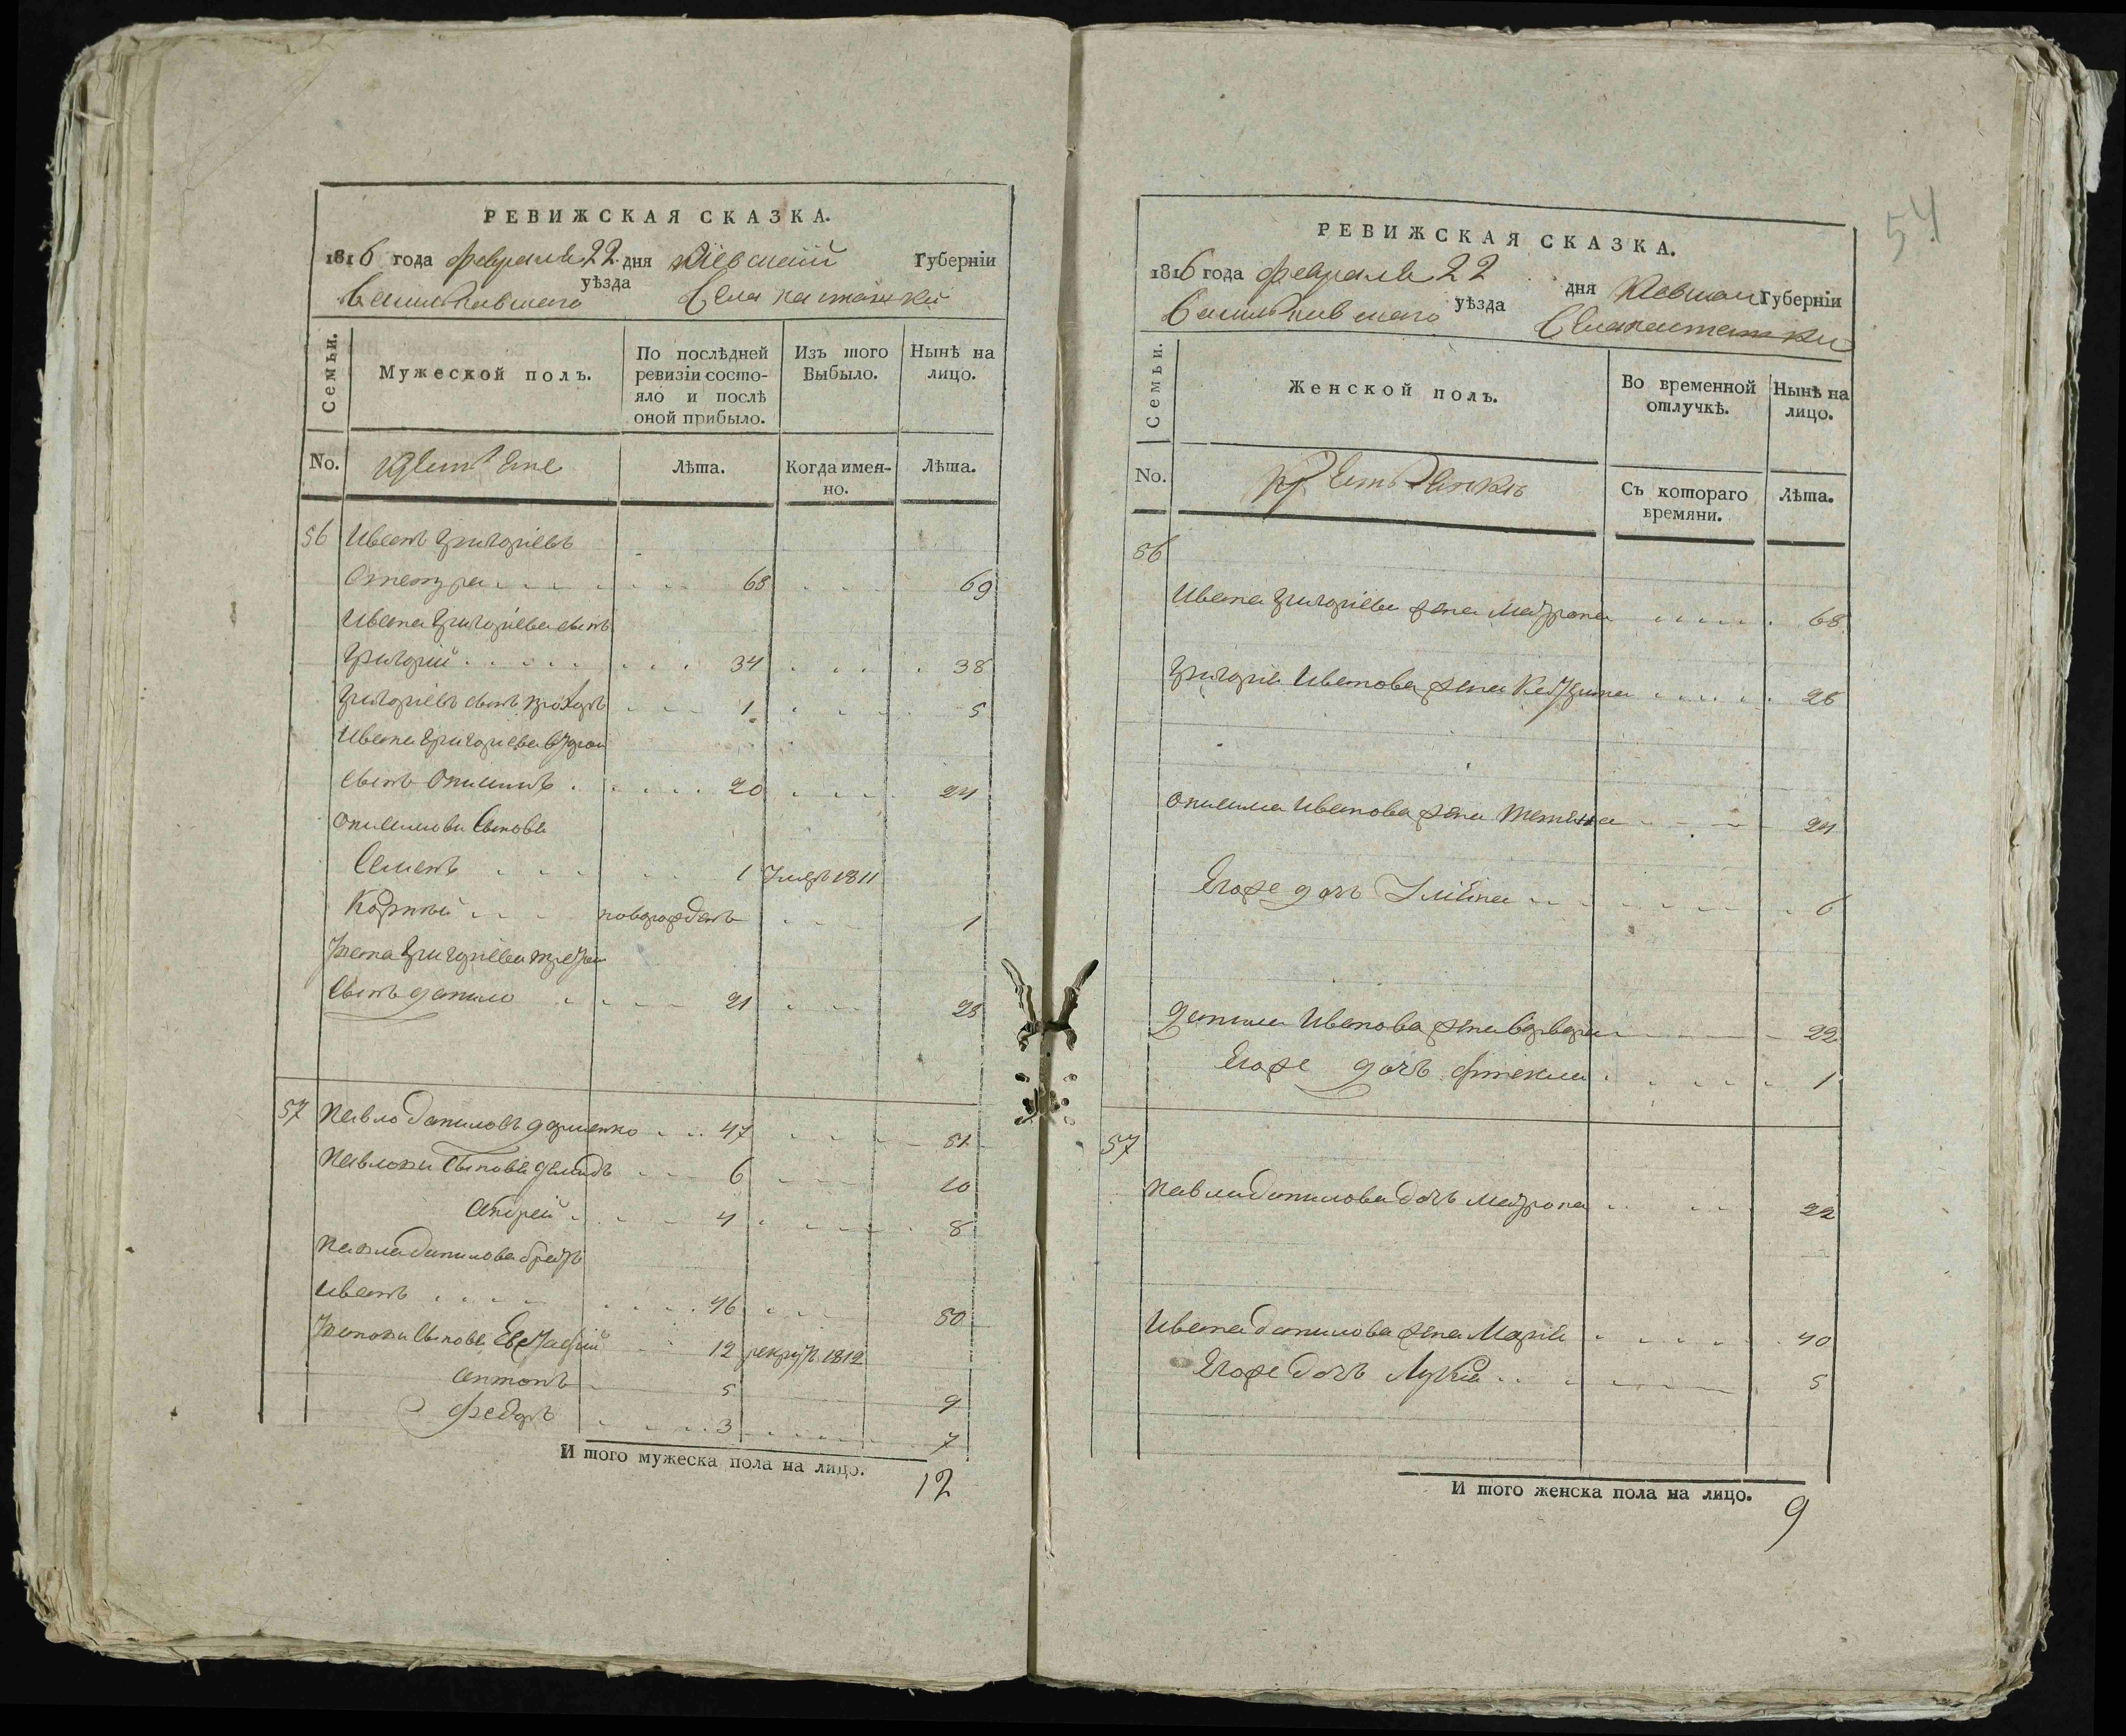 РЕВИЖСКАЯ СКАЗКА.
1816 года февраля 22 дня Кіевской Губерніи
Василковскаго уѣзда Села
Семьи.
Мужеской полъ.
По послѣдней ревизіи состо-
яло и послѣ
оной прибыло.
Изъ того
Выбыло.
Нынѣ на
лицо.
No.
Лѣта.
Когда имен-
но.
Лѣта.
56 Иванъ Григорієвъ
68 69
Ивана Григорієва сынъ
Григорій 34 38
Григорієвъ сынъ Прохоръ 1 5
Ивана Григорієва другой
сынъ Онисимъ 20 24
Онисимови сынове
Семенъ 1 умеръ 1811
Корній новорожденъ 1
Ивана Григорієва третій
сынъ Данило 21 28
57 Павло Даниловъ 47 51
Павловы сынове Демидъ 6 10
Андрей 4 8
Павла Данилова братъ
Иванъ 46 50
Ивановы сынове Евстафій 12 рекрут. 1812
Антонъ 5 9
Федоръ 3 7
И того мужеска пола на лицо.
12
54
РЕВИЖСКАЯ СКАЗКА.
1816 года февраля 22 дня Кіевской Губерніи
Василковскаго уѣзда Села
Семьи.
Женской полъ.
Во временной
отлучкѣ.
Нынѣ на
лицо.
No.
Съ котораго
времяни.
Лѣта.
56
Ивана Григоріева жена Матрона 68
Григорія Иванова жена Катерина 28
Онисима Иванова жена Татяна 24
Егоже дочъ Уліяна 6
Данила Иванова жена Варвара 22
Егоже дочъ Фтекла 1
57
Павла Данилова дочъ Матрона 22
Ивана Данилова жена Марія 40
Егоже дочъ Лукія 5
И того женска пола на лицо.
9